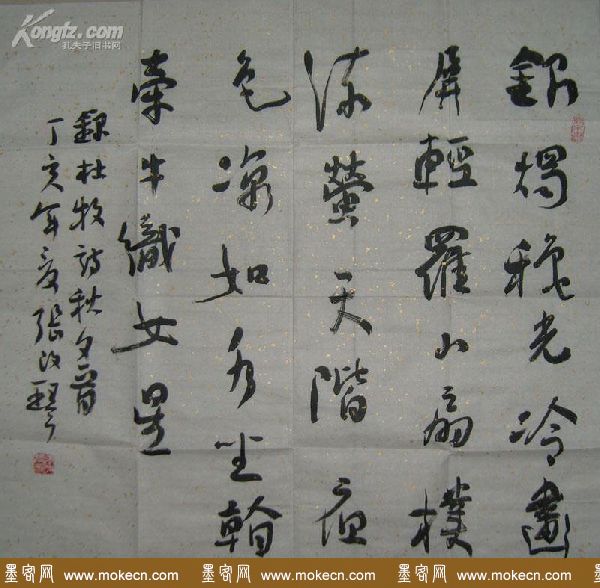 Kongfz.com
孔夫子旧书网
銀燭穐光冷畫
屏輕羅小扇撲
流螢天階夜
色凉如水坐看
牽牛織女星
錄杜牧詩秋夕一首
丁亥年夏張改琴
墨客网 www.mokecn.com 墨客网 www.mokecn.com 墨客网 www.mokecn.com